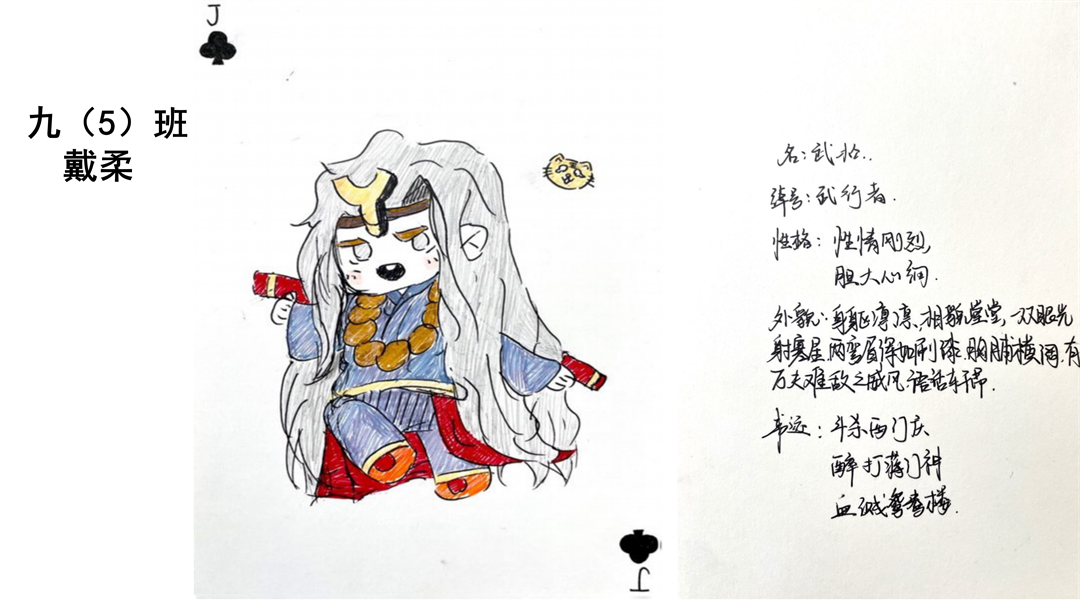 J
九（5）班
戴柔
名:武松..
绰号:武行者.
性格: 性情刚烈,
胆大心细.
外貌: 身躯凛凛,相貌堂堂, 双眼光
射寒星,两弯眉浑如刷漆.胸脯横阔.有
万夫难敌之威风.
事迹: 斗杀西门庆
醉打蒋门神
血溅鸳鸯楼.
J